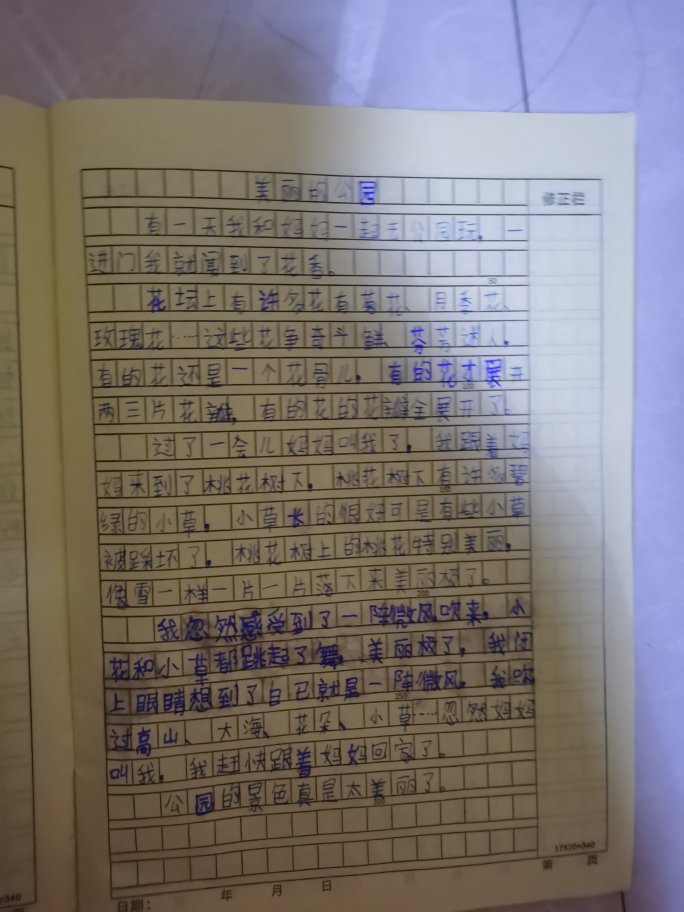 美丽的公园
修正栏
有一天我和妈妈一起去公园玩。一
进门我就闻到了花香。
花坛上有许多花有菊花、月季花、
玫瑰花……这些花争奇斗鲜、芬芳迷人。
有的花还是一个花骨儿。有的花才展开
两三片花瓣。有的花的花瓣全展开了。
过了一会儿妈妈叫我了。我跟着妈
妈来到了桃花树下。桃花树下有许多碧
绿的小草。小草长的很好可是有些小草
被踩坏了。桃花树上的桃花特别美丽。
像雪一样一片一片落下来美丽极了。
我忽然感受到了一阵微风吹来。小
花和小草都跳起了舞。美丽极了。我闭
上眼睛想到了自己就是一阵微风。我吹
过高山、大海、花朵、小草……忽然妈妈
叫我。我赶快跟着妈妈回家了。
公园的景色真是太美丽了。
17×20=340
第 页
日期: 年 月 日